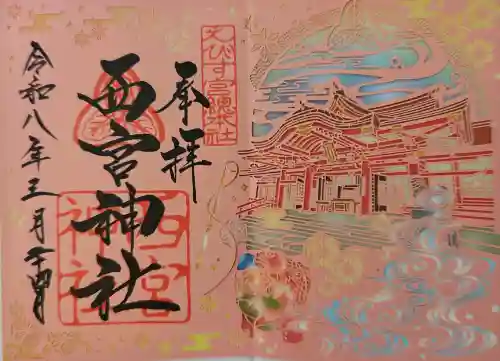 奉拝
えびす宮總本社
西宮神社
西宮神社
令和八年三月二十四日